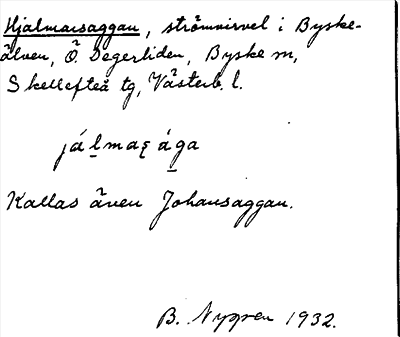 Hjalmarsaggan, strömvirvel i Byske-
älven, Ö. Degerliden, Byske sn,
Skellefteå tg, Västerb. l.
Kallas även Johansaggan.
B. Nygren 1932.